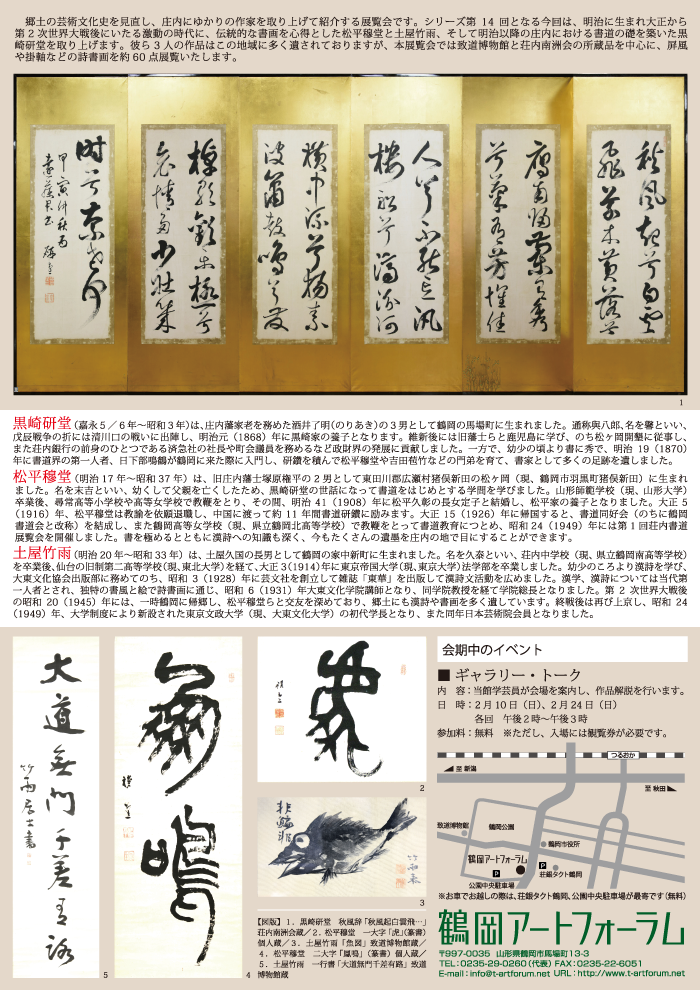 郷土の芸術文化史を見直し、庄内にゆかりの作家を取り上げて紹介する展覧会です。シリーズ第 14 回となる今回は、明治に生まれ大正から
第２次世界大戦後にいたる激動の時代に、伝統的な書画を心得とした松平穆堂と土屋竹雨、そして明治以降の庄内における書道の礎を築いた黒
崎研堂を取り上げます。彼ら３人の作品はこの地域に多く遺されておりますが、本展覧会では致道博物館と荘内南洲会の所蔵品を中心に、屏風
や掛軸などの詩書画を約 60 点展覧いたします。
秋風起兮白雲
飛草木黄落兮
雁南帰蘭有秀
兮菊有芳懐佳
人兮不能忘汎
楼船兮濟汾河
横中流兮揚素
波簫鼓鳴兮發
棹歌歓楽極兮
哀情多少壮幾
時兮奈老何
1
黒崎研堂（嘉永５／６年～昭和３年）は、庄内藩家老を務めた酒井了明（のりあき）の３男として鶴岡の馬場町に生まれました。通称與八郎、名を馨といい、
戊辰戦争の折には清川口の戦いに出陣し、明治元（1868）年に黒崎家の養子となります。維新後には旧藩士らと鹿児島に学び、のち松ヶ岡開墾に従事し、
また荘内銀行の前身のひとつである済急社の社長や町会議員を務めるなど政財界の発展に貢献しました。一方で、幼少の頃より書に秀で、明治 19（1870）
年に書道界の第一人者、日下部鳴鶴が鶴岡に来た際に入門し、研鑽を積んで松平穆堂や吉田苞竹などの門弟を育て、書家として多くの足跡を遺しました。
松平穆堂（明治 17 年～昭和 37 年）は、旧庄内藩士塚原権平の２男として東田川郡広瀬村猪俣新田の松ヶ岡（現、鶴岡市羽黒町猪俣新田）に生まれ
ました。名を末吉といい、幼くして父親を亡くしたため、黒崎研堂の世話になって書道をはじめとする学問を学びました。山形師範学校（現、山形大学）
卒業後、尋常高等小学校や高等女学校で教鞭をとり、その間、明治 41（1908）年に松平久彰の長女定子と結婚し、松平家の養子となりました。大正５
（1916）年、松平穆堂は教諭を依願退職し、中国に渡って約 11 年間書道研鑽に励みます。大正 15（1926）年に帰国すると、書道同好会（のちに鶴岡
書道会と改称）を結成し、また鶴岡高等女学校（現、県立鶴岡北高等学校）で教鞭をとって書道教育につとめ、昭和 24（1949）年には第１回荘内書道
展覧会を開催しました。書を極めるとともに漢詩への知識も深く、今もたくさんの遺墨を庄内の地で目にすることができます。
土屋竹雨（明治 20 年～昭和 33 年）は、土屋久国の長男として鶴岡の家中新町に生まれました。名を久泰といい、荘内中学校（現、県立鶴岡南高等学校）
を卒業後、仙台の旧制第二高等学校（現、東北大学）を経て、大正３（1914）年に東京帝国大学（現、東京大学）法学部を卒業しました。幼少のころより漢詩を学び、
大東文化協会出版部に務めてのち、昭和３（1928）年に芸文社を創立して雑誌「東華」を出版して漢詩文活動を広めました。漢学、漢詩については当代第
一人者とされ、独特の書風と絵で詩書画に通じ、昭和６（1931）年大東文化学院講師となり、同学院教授を経て学院総長となりました。第２次世界大戦後
の昭和 20（1945）年には、一時鶴岡に帰郷し、松平穆堂らと交友を深めており、郷土にも漢詩や書画を多く遺しています。終戦後は再び上京し、昭和 24
（1949）年、大学制度により新設された東京文政大学（現、大東文化大学）の初代学長となり、また同年日本芸術院会員となりました。
大道無門千差有路
竹雨居士書
5
鳳鳴
穆堂
4
虎
2
竹雨
3
【図版】１．黒崎研堂　秋風辞「秋風起白雲飛…」
荘内南洲会蔵／２．松平穆堂　一大字「虎」（篆書）
個人蔵／３．土屋竹雨「魚図」致道博物館蔵／
４．松平穆堂　二大字「鳳鳴」（篆書）個人蔵／
５．土屋竹雨　一行書「大道無門千差有路」致道
博物館蔵
会期中のイベント
■ ギャラリー・トーク
内　容：当館学芸員が会場を案内し、作品解説を行います。
日　時：２月 10 日（日）、２月 24 日（日）
各回　午後２時～午後３時
参加料：無料　※ただし、入場には観覧券が必要です。
つるおか
至 新潟
至 秋田
致道博物館
鶴岡公園
鶴岡市役所
鶴岡アートフォーラム
P
P
荘銀タクト鶴岡
公園中央駐車場
※お車でお越しの際は、荘銀タクト鶴岡、公園中央駐車場が最寄です（無料）
鶴岡アートフォーラム
〒997-0035　山形県鶴岡市馬場町13-3
TEL：0235-29-0260（代表） FAX：0235-22-6051
E-mail：info@t-artforum.net URL：http://www.t-artforum.net